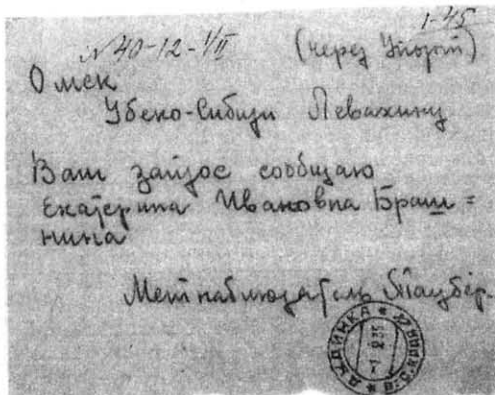 1-45
№40-12-1/II (через Уборп)
Омск
Убеко-Сибири Левахину
Ваш запрос сообщаю
Екатерина Ивановна Браш=
нина
Метнаблюдатель Таубер.
ДУДИНКА